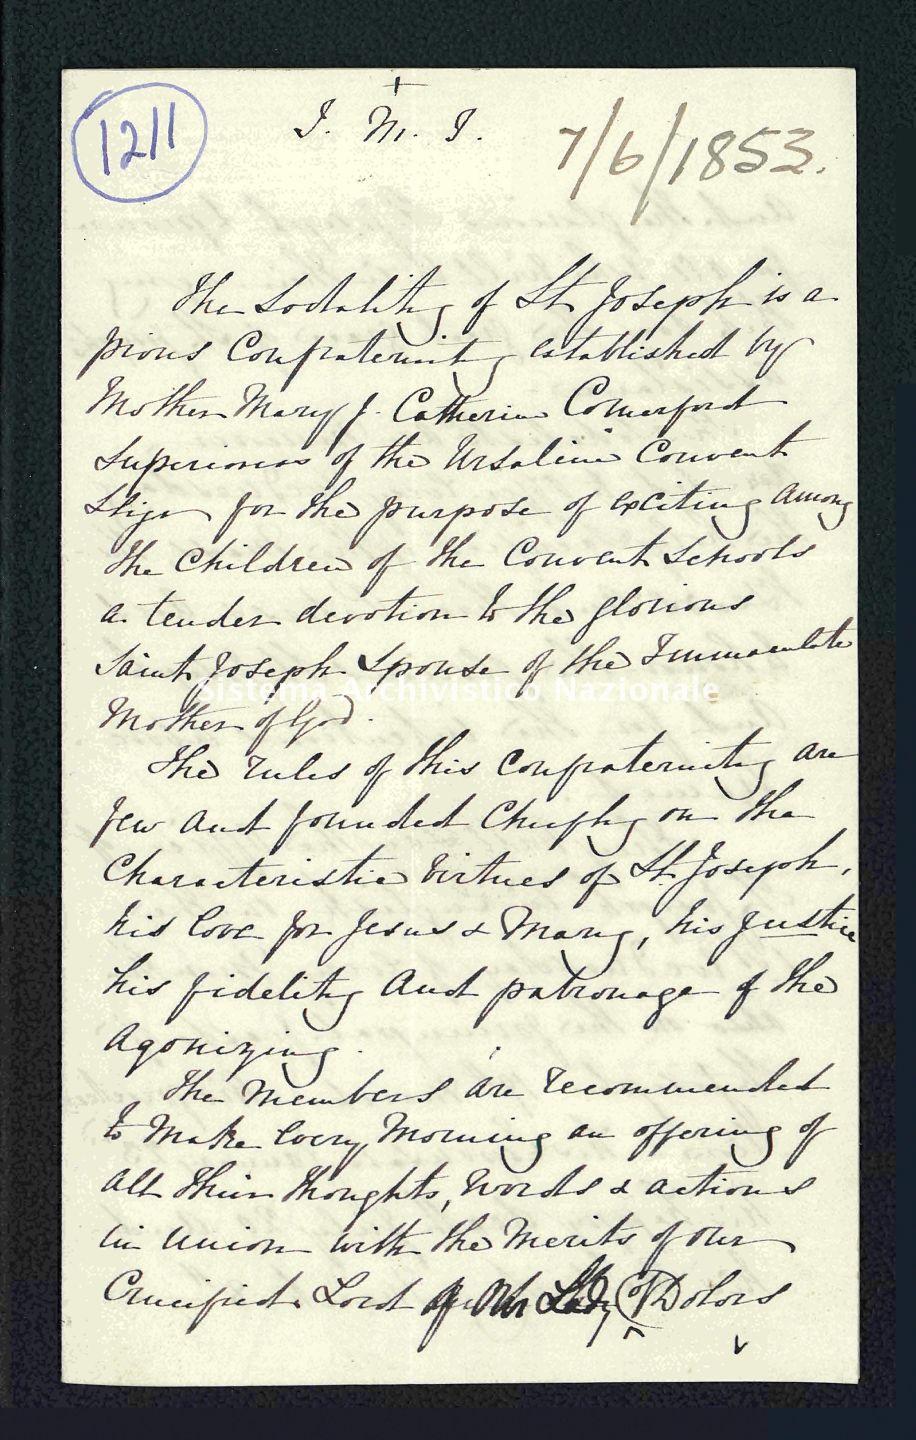 1211
J. M. J.
7/6/1853.
The Sodality of St Joseph is a
pious Confraternity established by
Mother Mary J. Catherine Comerford
Superioress of the Ursuline Convent
Sligo for the purpose of exciting among
the children of the Convent Schools
a tender devotion to the glorious
Saint Joseph Spouse of the Immaculate
Mother of God.
Sistema Archivistico Nazionale
The rules of this Confraternity are
few and founded chiefly on the
Characteristic virtues of St. Joseph,
his love for Jesus & Mary, his justice
his fidelity and patronage of the
Agonizing.
The Members are recommended
to make every Morning an offering of
all their thoughts, words & actions
in union with the Merits of our
Crucified Lord Our Lady Dolors